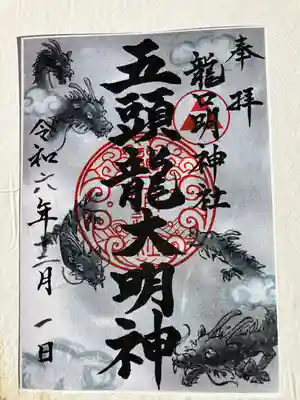 奉拝
龍口明神社
五頭龍大明神
令和六年十二月一日